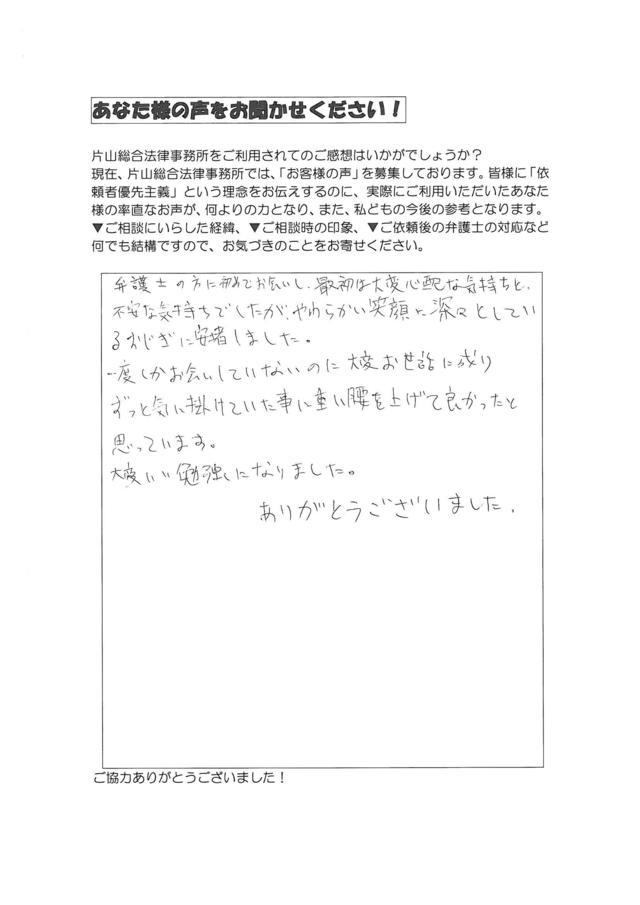 あなた様の声をお聞かせください！
片山総合法律事務所をご利用されてのご感想はいかがでしょうか？
現在、片山総合法律事務所では、「お客様の声」を募集しております。皆様に「依
頼者優先主義」という理念をお伝えするのに、実際にご利用いただいたあなた
様の率直なお声が、何よりの力となり、また、私どもの今後の参考となります。
▼ご相談にいらした経緯、▼ご相談時の印象、▼ご依頼後の弁護士の対応など
何でも結構ですので、お気づきのことをお寄せください。
弁護士の方に初めてお会いし、最初は大変心配な気持ちと、
不安な気持ちでしたが、やわらかい笑顔と深々としてい
るおじぎに安堵しました。
一度しかお会いしていないのに大変お世話に成り
ずっと気に掛けていた事に重い腰を上げて良かったと
思っています。
大変いい勉強になりました。
ありがとうございました.
ご協力ありがとうございました！